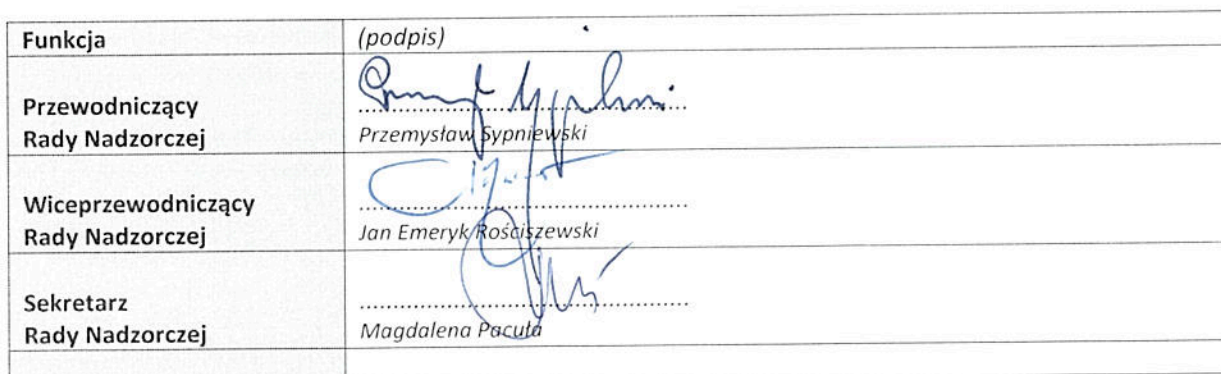 Funkcja (podpis)
Przewodniczący
Rady Nadzorczej
........................................................
Przemysław Sypniewski
Wiceprzewodniczący
Rady Nadzorczej
........................................................
Jan Emeryk Rościszewski
Sekretarz
Rady Nadzorczej
........................................................
Magdalena Pacuła